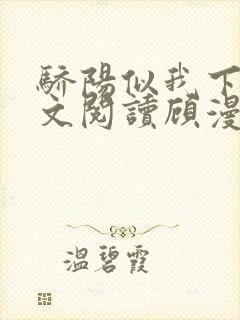 驕陽似我下
文閱讀顧漫
溫碧霞